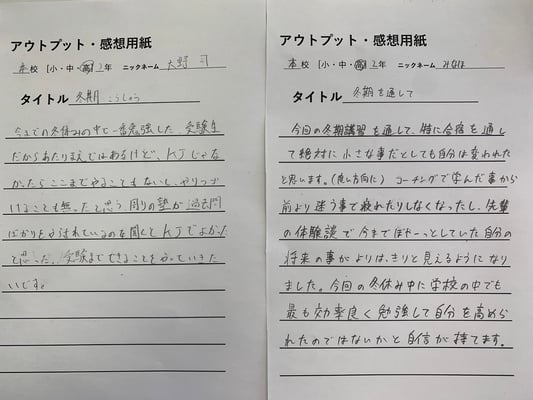 アウトプット・感想用紙
本校 [小・中・高]2年 ニックネーム 大野 司
タイトル 冬期 こうしゅう
今までの冬休みの中で一番勉強した 受験生
だからあたりまえではあるけど、KJじゃな
かったらここまでやることもないし、やりつづ
けることも無ったと思う 周りの塾が過去問
ばかりをやらされているのを聞くとKJでよかった
と思った、受験まできることをやっていきた
いです。
アウトプット・感想用紙
本校 [小・中・高]2年 ニックネーム みなほ
タイトル 冬期を通して
今回の冬期講習を通して、特に合宿を通し
て絶対に小さな事だとしても自分は変われた
と思います。(良い方向に) コーチングで学んだ事から
前より迷う事で疲れたりしなくなったし、先輩
の体験談で今までぼやーっとしていた自分の
将来の事がよりはっきりと見えるようになり
ました。今回の冬休み中に学校の中でも
最も効率良く勉強して自分を高めら
れたのではないかと自信が持てます。